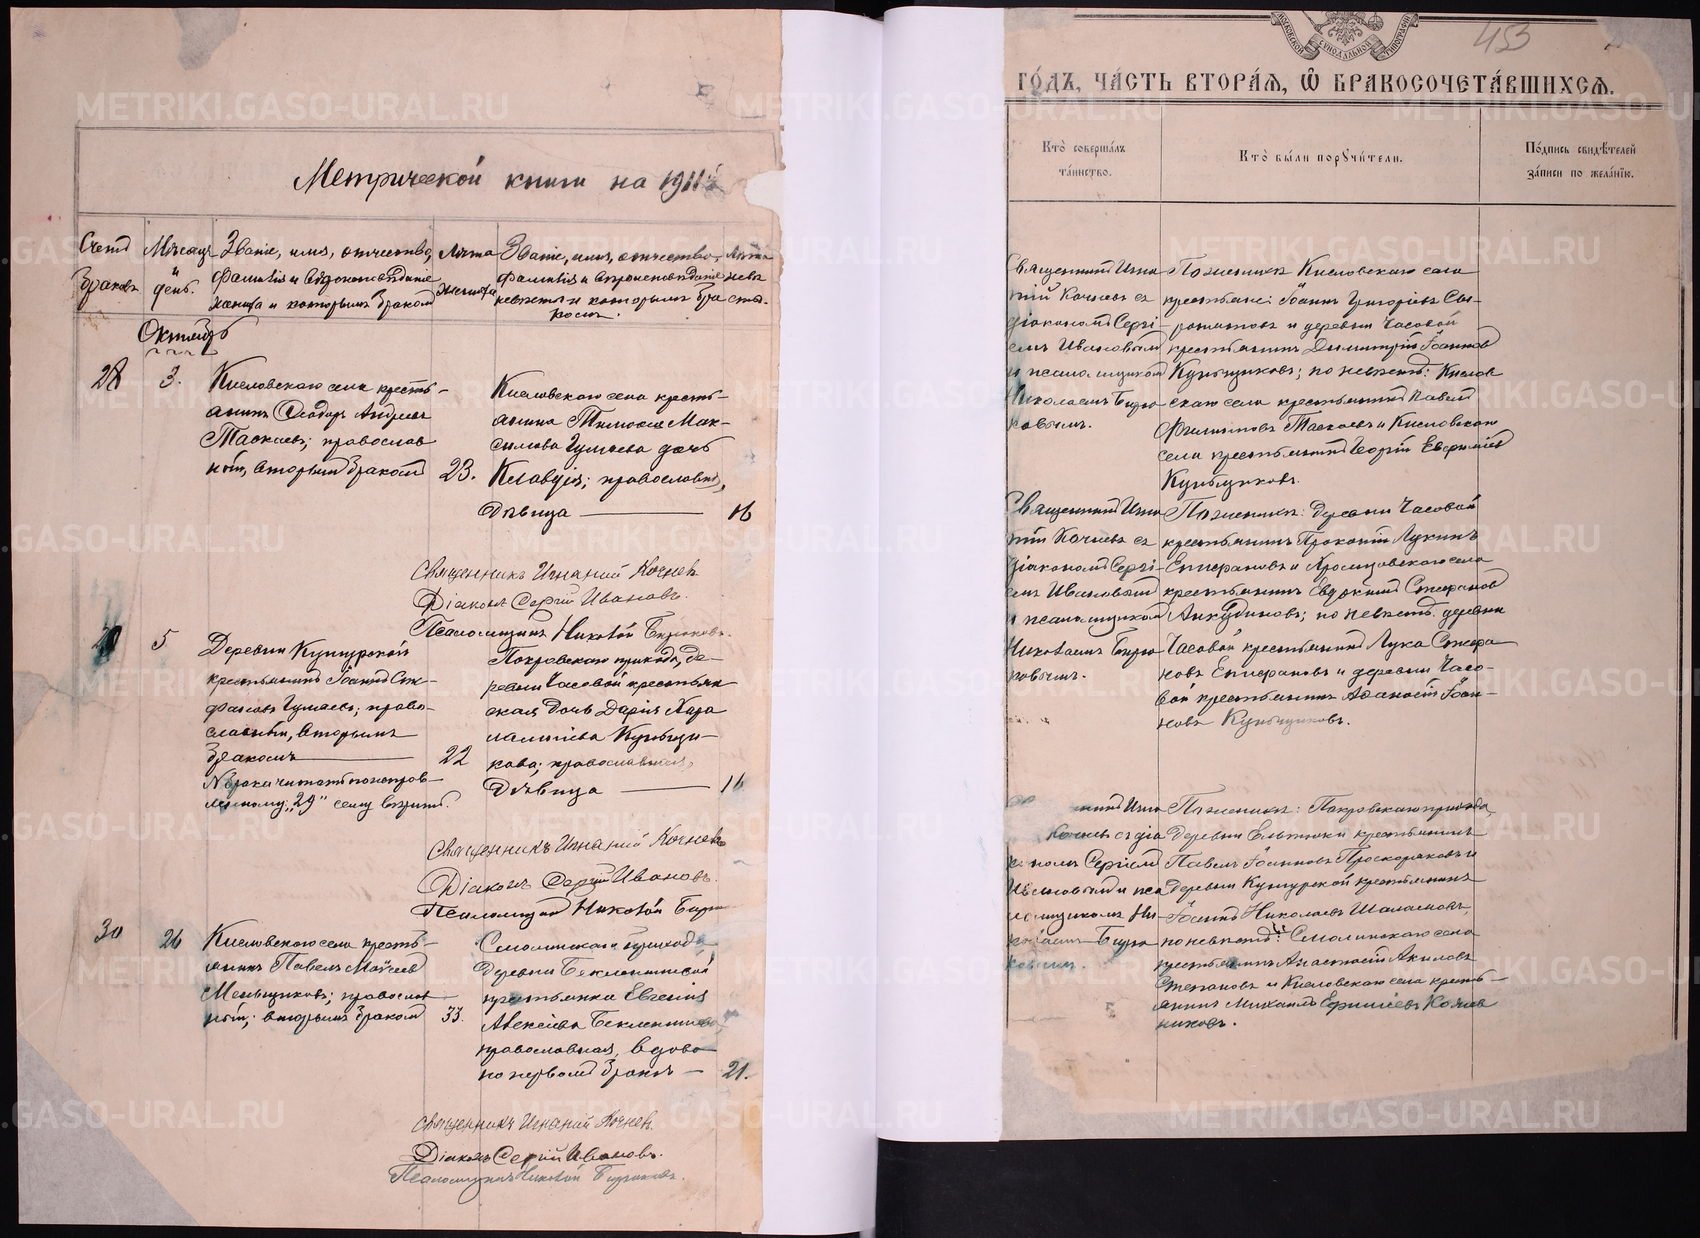 Метрической книги на 1911
Счетъ браковъ
Мѣсяцъ и день.
Званіе, имя, отчество, фамилія и вѣроисповѣданіе жениха и которымъ бракомъ
Лѣта жениха
Званіе, имя, отчество, фамилія и вѣроисповѣданіе невѣсты и которымъ бракомъ.
Лѣта невѣсты.
Октябрь
28
3.
Кисловскаго села кресть-
янинъ Ѳеодоръ Андреевъ
Таскаевъ; православ
ный, вторымъ бракомъ
23.
Кисловскаго села кресть-
янина Тимоѳея Мак-
симова Чумаева дочь
Клавдія; православн.,
дѣвица
16
Священникъ Игнатій Кочневъ
Діаконъ Сергій Ивановъ.
Псаломщикъ Николай Бирюковъ.
29
5
Деревни Кунгурской
крестьянинъ Іоаннъ Сте-
фановъ Чумаевъ; право-
славный, вторымъ
бракомъ
22
№ брака читать по исправ-
ленному: „29" сему вѣрить.
Покровскаго прихода, де-
ревни Часовой крестьян
ская дочь Дарія Хара
лампіева Кунгщи-
кова; православная,
Дѣвица
16
Священникъ Игнатій Кочневъ
Діаконъ Сергій Ивановъ.
Псаломщикъ Николай Бирю
30
26
Кисловскаго села кресть-
янинъ Павелъ Моѵсеевъ
Меньщиковъ; православ
ный; вторымъ бракомъ
33.
Смолинскаго прихода,
деревни Беклемишевой
крестьянка Евгенія
Алексіева Беклемишева
православная, вдова
по первомъ бракѣ
21.
Священникъ Игнатій Кочневъ.
Діаконъ Сергій Ивановъ.
Псаломщикъ Николай Бирюковъ.
453
МОСКОВСКОЙ СѴНОДАЛЬНОЙ ТИПОГРАФІИ
ГО́ДЪ, ЧА́СТЬ ВТОРА́Я, Ѽ БРАКОСОЧЕТА́ВШИХСЯ.
Кто̀ соверша́лъ та́инство.
Кто̀ бы́ли поручи́тели.
По́дпись свидѣ́телей за́писи по жела́нїю.
Священникъ Игна
тій Кочневъ съ
діакономъ Сергі-
емъ Ивановымъ
и псаломщикомъ
Николаемъ Бирю
ковымъ.
По женихѣ: Кисловскаго села
крестьяне: Іоаннъ Григоріевъ Сы-
ромятовъ и деревни Часовой
крестьянинъ Димитрій Іоанновъ
по невѣстѣ: Кислов
скаго села крестьянинъ Павелъ
Филиповъ Таскаевъ и Кисловскаго
села крестьянинъ Георгій Евфиміевъ
Священникъ Игна
тій Кочневъ съ
діакономъ Сергі-
емъ Ивановымъ
и псаломщикомъ
Николаемъ Бирю
ковымъ.
По женихѣ: деревни Часовой
крестьянинъ Прокопій Лукинъ
Епифановъ и села
крестьянинъ Евдокимъ Стефановъ
Анкудиновъ; по невѣстѣ: деревни
Часовой крестьянинъ Лука Стефа
новъ Епифановъ и деревни Часо-
вой крестьянинъ Аѳанасій Іоан-
новъ
Игна
Кочневъ съ діа
кономъ Сергіемъ
Ивановымъ и пса
ломщикомъ Ни-
колаемъ Бирю
ковымъ.
По женихѣ: Покровскаго прихода,
деревни Ельтюки крестьянинъ
Павелъ Іоанновъ Проскуряковъ и
деревни Кунгурской крестьянинъ
Іоаннъ Николаевъ Шаламовъ,
по невѣстѣ: Смолинскаго села
крестьянинъ Анастасій Акиловъ
Степановъ и Кисловскаго села кресть-
янинъ Михаилъ Ефиміевъ Кожев
никовъ.
METRIKI.GASO-URAL.RU